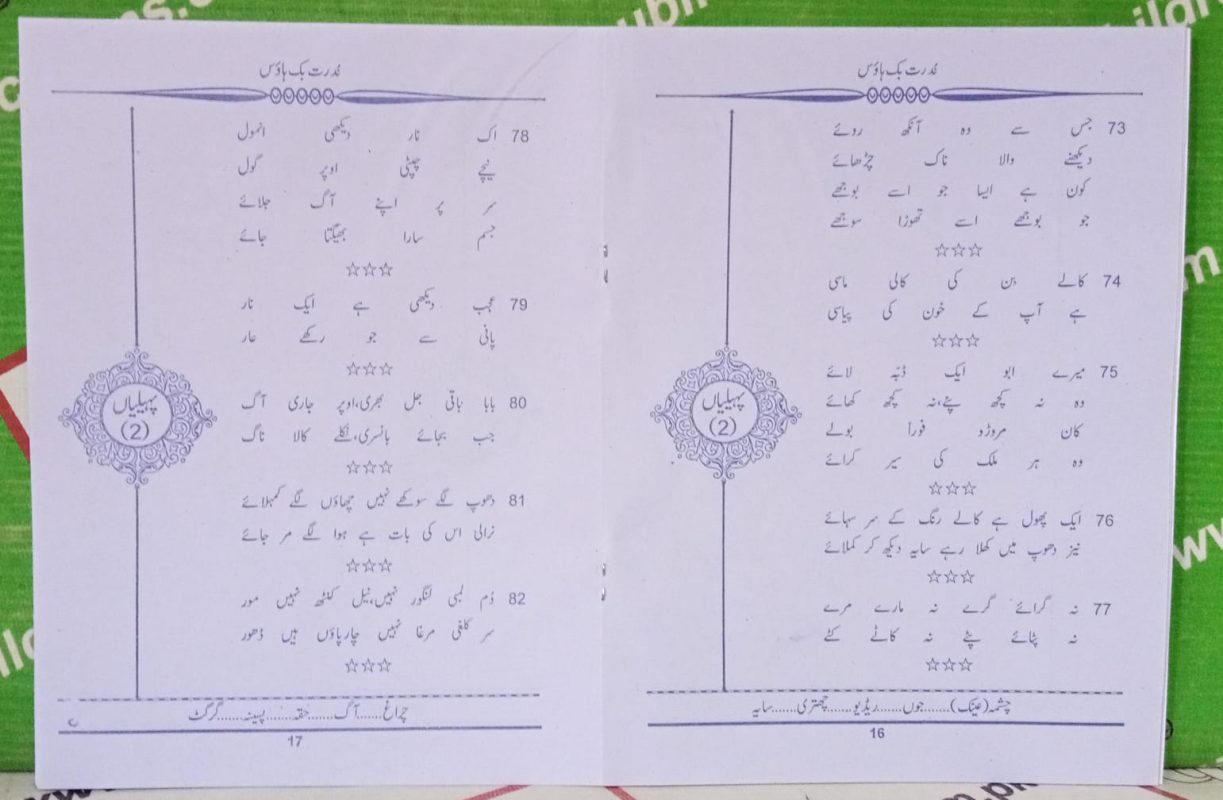 قدرت بک ہاؤس
73 جس سے وہ آنکھ روئے
دیکھنے والا ناک چڑھائے
کون ہے ایسا جو اسے بوجھے
جو بوجھے اسے تھوڑا سوجھے
☆☆☆
74 کالے بن کی کالی ماسی
ہے آپ کے خون کی پیاسی
☆☆☆
75 میرے ابو ایک ڈبّہ لائے
وہ نہ کچھ پئے،نہ کچھ کھائے
کان مروڑو فوراً بولے
وہ ہر ملک کی سیر کرائے
☆☆☆
76 ایک پھول ہے کالے رنگ کے سر سہائے
نیز دھوپ میں کھلا رہے سایہ دیکھ کر کملائے
☆☆☆
77 نہ گرائے گرے نہ مارے مرے
نہ ہٹائے ہٹے نہ کاٹے کٹے
☆☆☆
پہیلیاں
(2)
چشمہ(عینک)......جوں......ریڈیو......چھتری......سایہ
16
قدرت بک ہاؤس
78 اک نار دیکھی انمول
نیچے چپٹی اوپر گول
سر پر اپنے آگ جلائے
جسم سارا بھیگتا جائے
☆☆☆
79 عجب دیکھی ہے ایک نار
پانی سے جو رکھے عار
☆☆☆
80 بابا باقی جل بھری،اوپر جاری آگ
جب بجائے بانسری،نکلے کالا ناگ
☆☆☆
81 دھوپ لگے سوکھے نہیں چھاؤں لگے کمہلائے
نرالی اس کی بات ہے ہوا لگے مر جائے
☆☆☆
82 دُم لمبی لنگور نہیں،نیل کنٹھ نہیں مور
سر کلغی مرغا نہیں چارپاؤں ہیں ڈھور
☆☆☆
پہیلیاں
(2)
چراغ......آگ......حقہ......پسینہ......گرگٹ
17